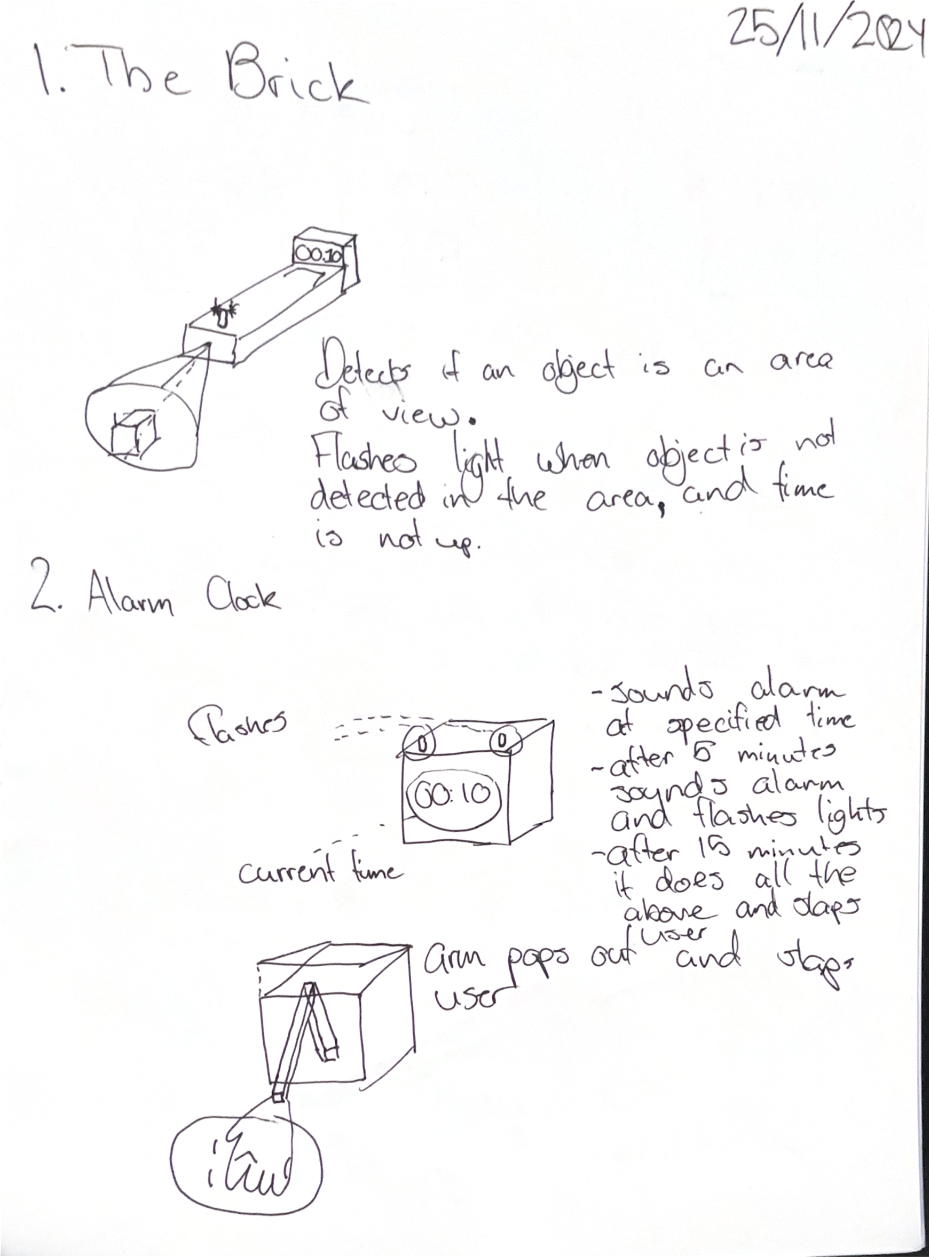 25/11/2024
1. The Brick
00:10
Detects if an object is an area
of view.
Flashes light when object is not
detected in the area, and time
is not up.
2. Alarm Clock
flashes
00:10
current time
- sounds alarm
at specified time
- after 5 minutes
sounds alarm
and flashes lights
- after 15 minutes
it does all the
above and slaps
user
arm pops out and slaps
user